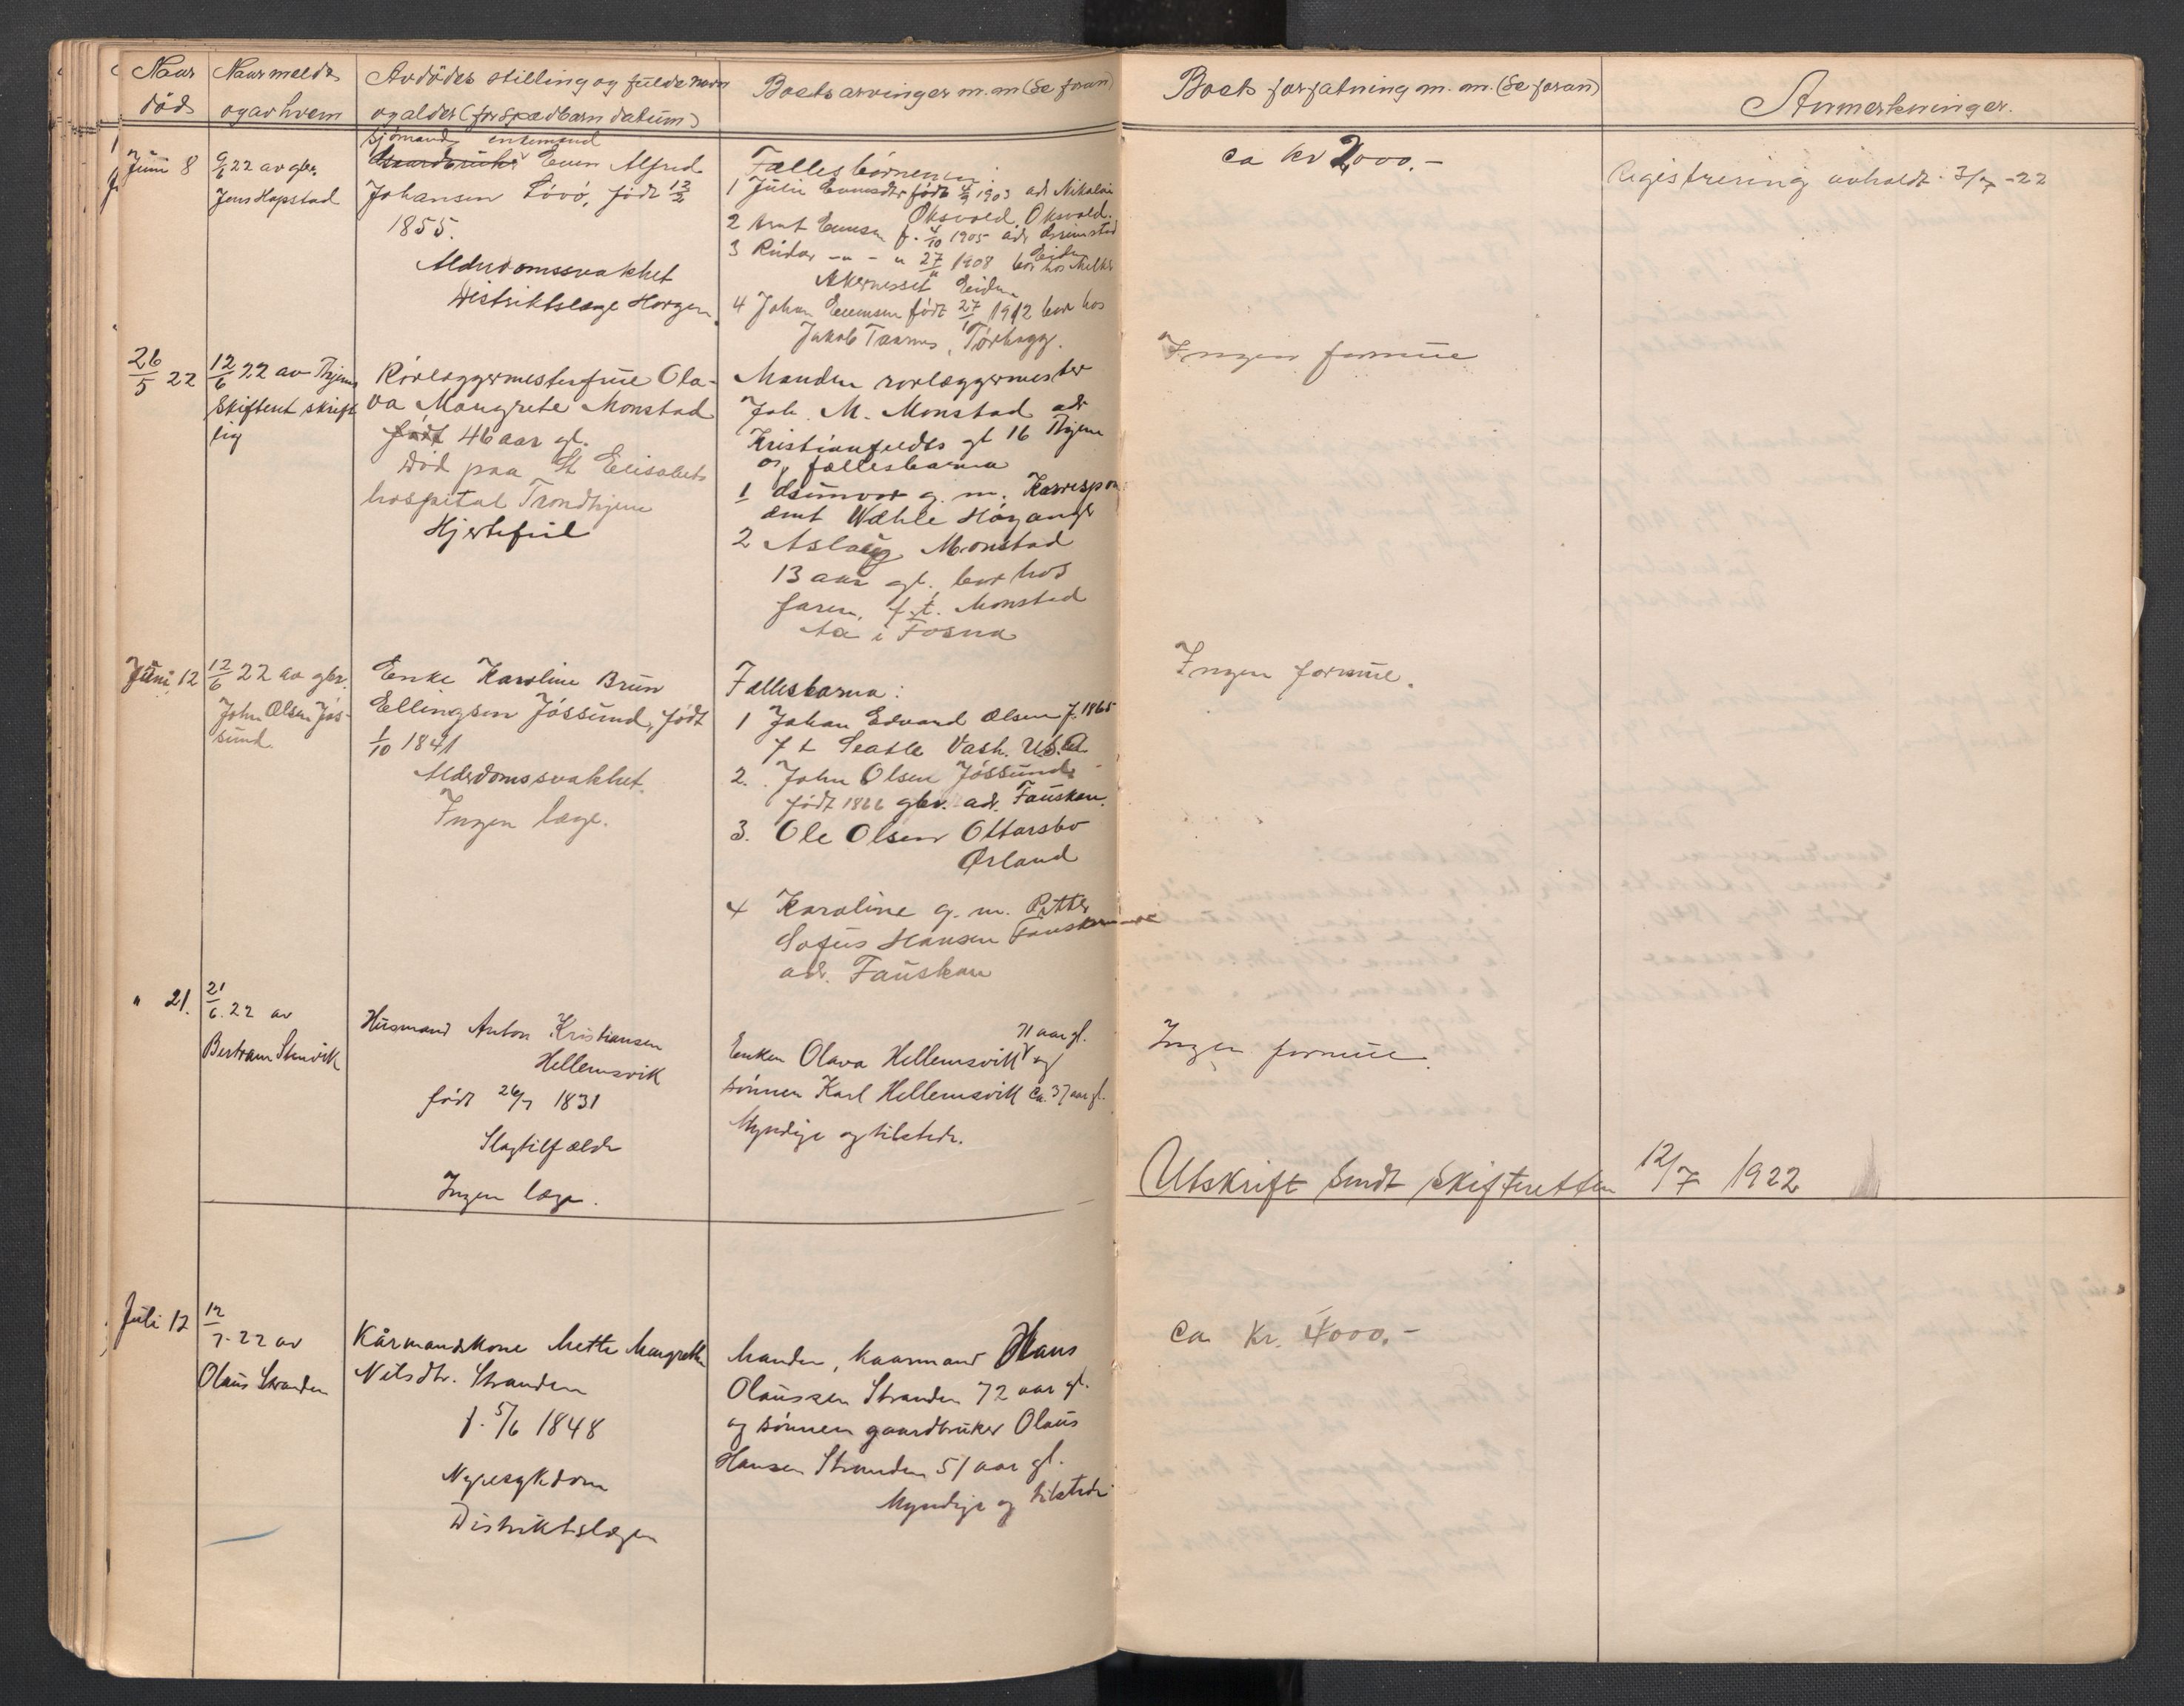 Naar død
Naar meldt og av hvem
Avdødes stilling og fulde navn og alder (for spædbarn datum)
Boets arvinger m.m. (Se foran)
Boets forfatning m.m. (Se foran)
Anmerkninger.
Juni 8
9/6 22 av gbr.
Jens Hopstad
Sjømand, enkemand
Gaardbruker Even Alfred
Johansen Løvø, født 12/2
1855.
Alderdomssvakhet
Distriktslæge Horgen
Fællesbørnene:
1 Julie Evensdtr født 4/9 1903 adr Nikolai
Oksvold, Oksvold.
2 Arnt Evensen f. 4/10 1905 adr
3 Reidar -"- " 27/11 1908 bor hos
Eiden
4 Johan Evensen født 27/1 1912 bor hos
Jakob Taarnes, Tørhogg.
ca kr 2,000.-
Registrering avholdt 3/7 -22
26/5 22
12/6 22 av Thjems
Skifteret skrift
lig
Rørlæggermesterfrue Ola-
va Margrete Monstad
født 46 aar gl.
Død paa St Elisabets
hospital Trondhjem
Hjertefeil
Manden rørlæggermester
Joh. M. Monstad adr
Kristianfeldts gt 16 Thjem
og fællesbarna
1 g. m. Korrespon
dent Wæhle Høyanger
2 Aslaug Monstad
13 aar gl. bor hos
faren, f.t. Monstad
Aa i Fosna
Ingen formue
Juni 12
12/6 22 av gbr.
John Olsen Jøs-
sund.
Enke Karoline Brun
Ellingsen Jøssund, født
1/10 1841
Alderdomssvakhet.
Ingen læge.
Fællesbarna:
1 Johan Edvard Olsen f. 1865
f t Seatle Vash. U.S.A.
2. John Olsen Jøssund
født 1866 gbr. adr. Fauskan.
3. Ole Olsen Ottersbo
Ørland
4 Karoline g. m. Petter
Sofus Hansen
adr. Fauskan
Ingen formue.
" 21.
21/6. 22 av
Bertram Stenvik
Husmand Anton Kristiansen
Hellemsvik
født 26/7 1831
Slagtilfælde
Ingen læge.
71 aar gl.
Enken Olava Hellemsvik og
sønnen Karl Hellemsvik ca. 37 aar gl.
Myndige og tilstede.
Ingen formue.
Utskrift sendt Skifteretten 12/7 1922
Juli 12
12/7-22 av
Olaus Stranden
Kårmandskone Mette Margrethe
Nilsdtr. Stranden
f. 5/6 1848
Nyresykdom
Distriktslægen
Manden, kaarmand Hans
Olaussen Stranden 72 aar gl.
og sønnen gaardbruker Olaus
Hansen Stranden 51 aar gl.
Myndige og tilstede
Ca Kr. 4000.-